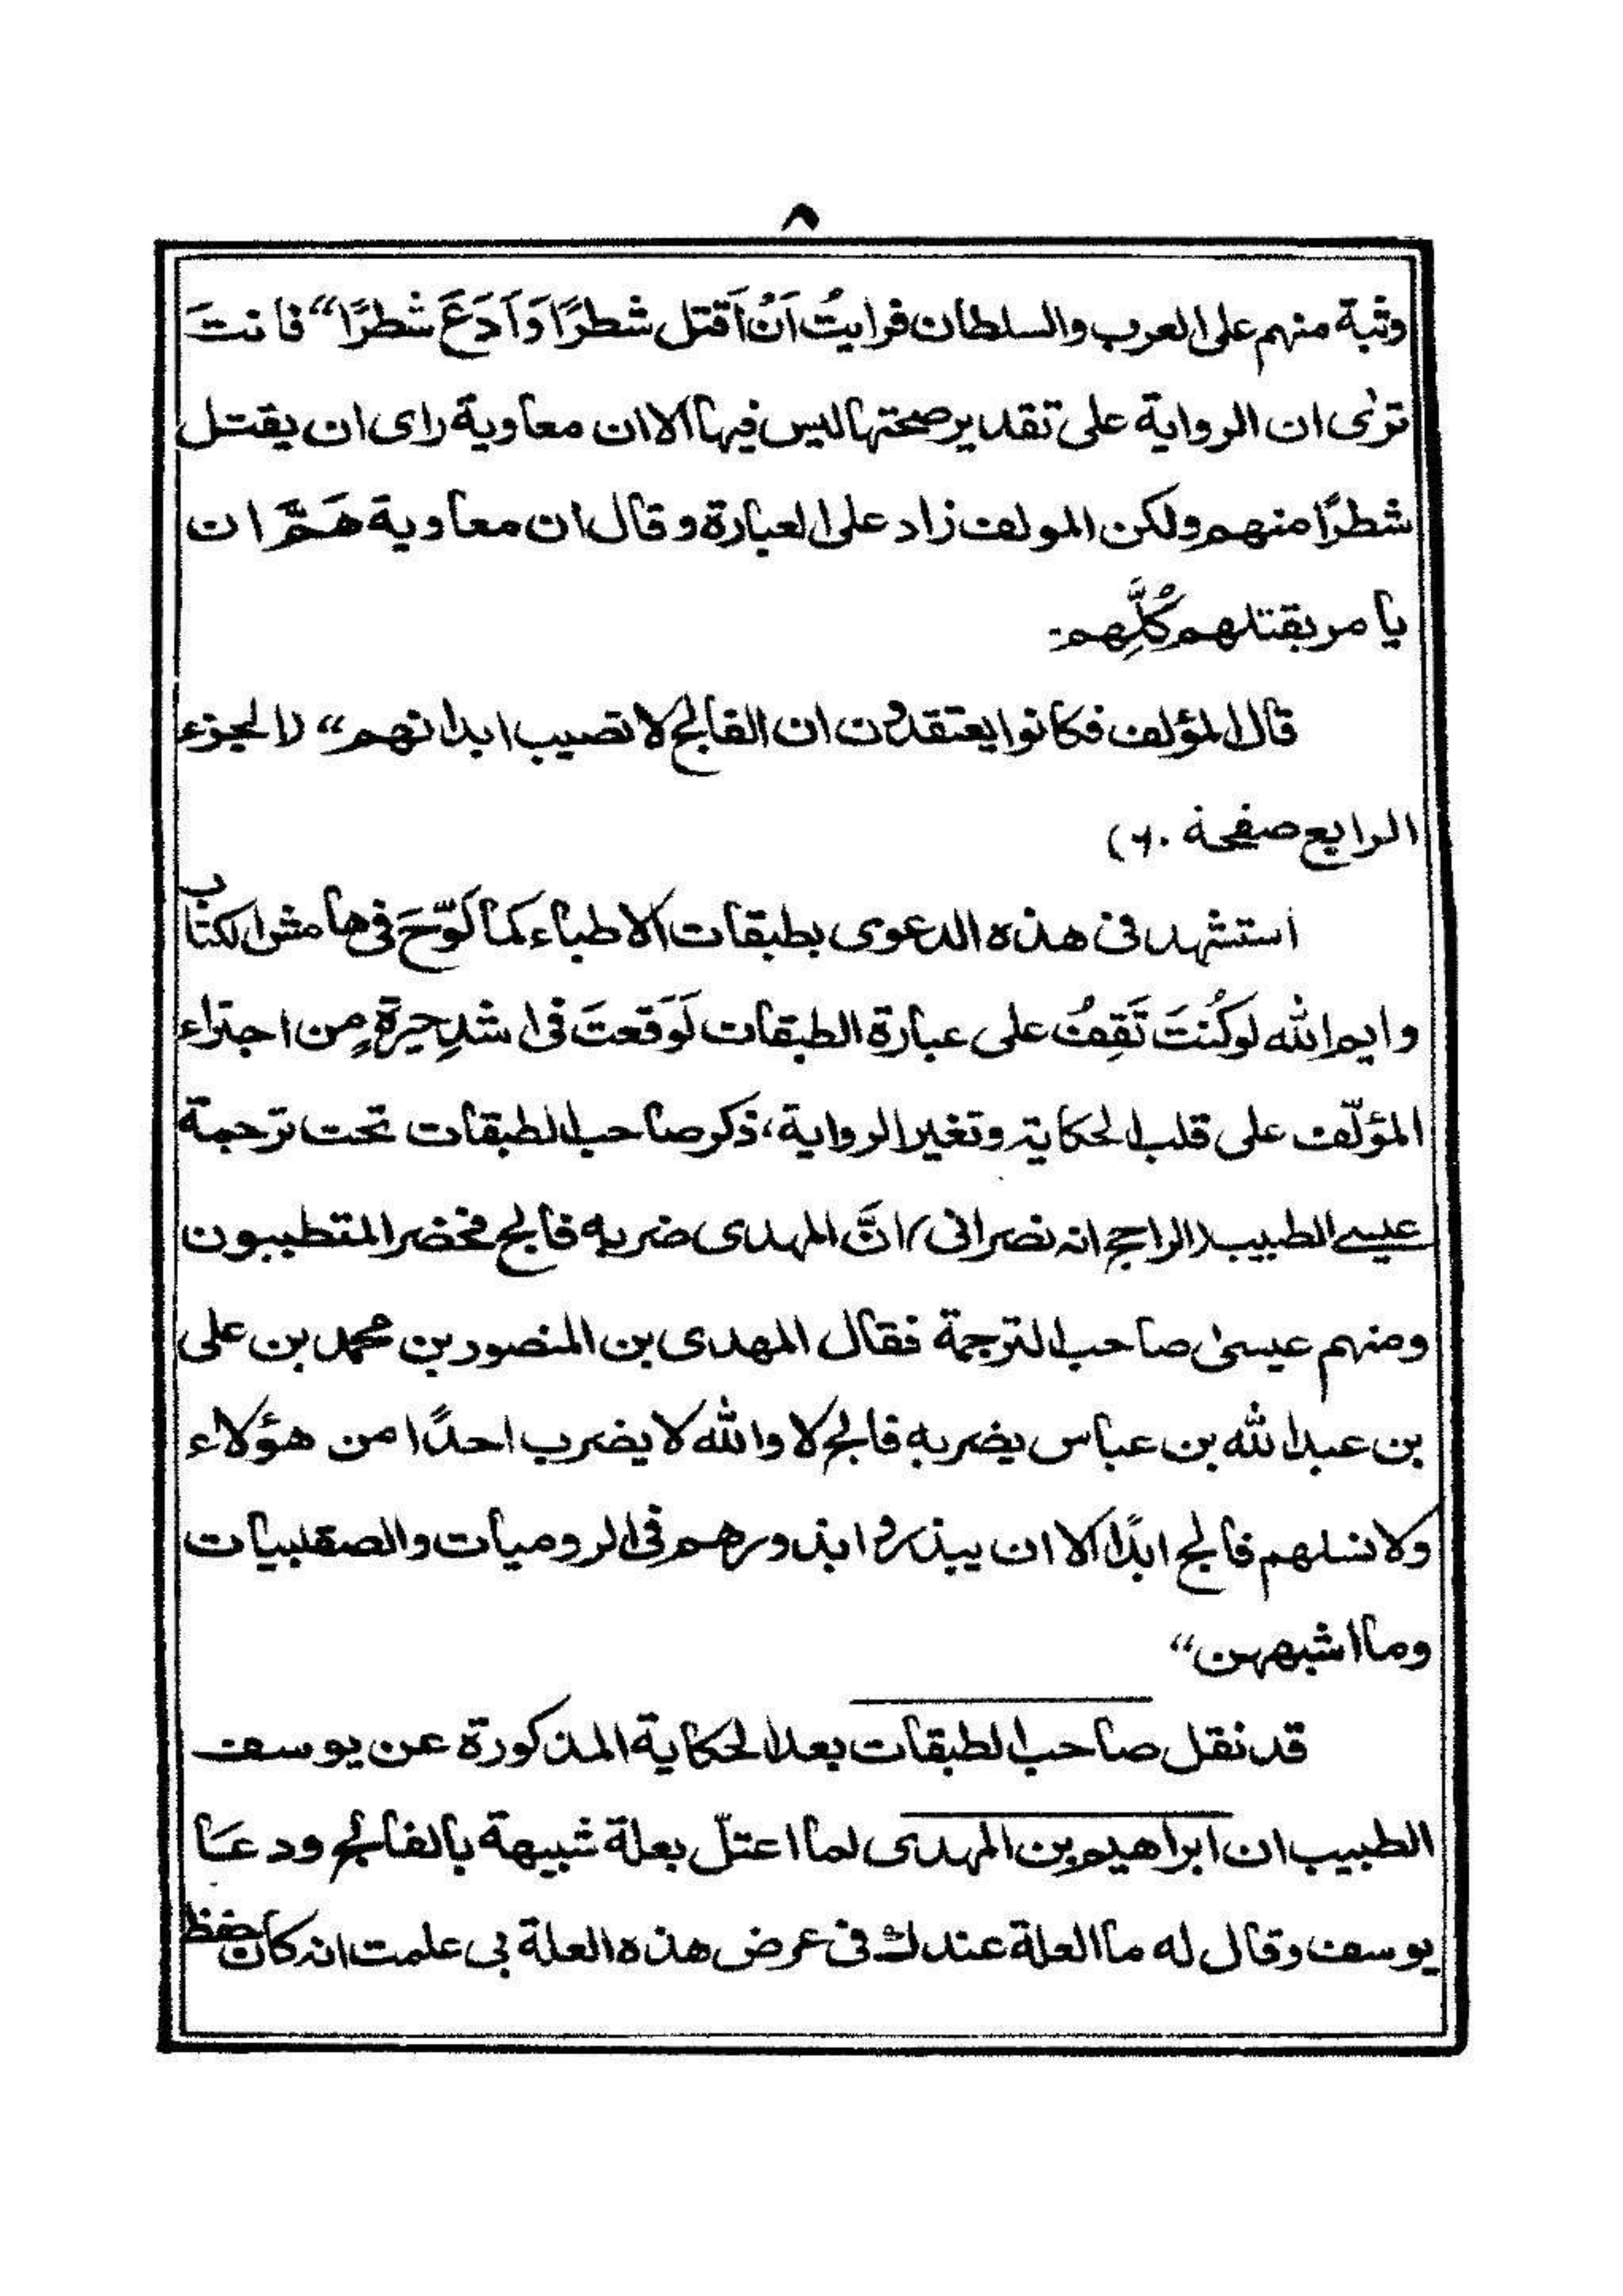 ٨
وثبة منهم على العرب والسلطان فرايتُ اَنْ اَقتل شطرًا وَاَدَعَ شطرًا“ فانتَ
ترٰى ان الرواية على تقدير صحتها ليس فيها الا ان معاوية راى ان يقتل
شطرًا منهم ولكن المولف زاد على العبارة وقال ان معاوية هَمَّ ان
يامر بقتلهم كُلِّهم:
قال المؤلف فكانوا يعتقدون ان الفالج لا تصيب ابدانهم“ (الجزء
الرابع صفحة ٦٠)
استشهد فى هذه الدعوى بطبقات الاطباء كما لَوَّحَ فى هامش الكتاب
وايم الله لو كُنتَ تَقِفُ على عبارة الطبقات لَوَقعتَ فى اشدِ حيرةٍ مِن اجتراء
المؤلّف على قلب الحكاية وتغير الرواية، ذكر صاحب الطبقات تحت ترجمة
عيسى الطبيب (الراجح انه نصرانى) انَّ المهدى ضربه فالج فحضر المتطببون
ومنهم عيسىٰ صاحب الترجمة فقال المهدى بن المنصور بن محمد بن على
بن عبد الله بن عباس يضربه فالج لا والله لا يضرب احدًا من هؤلاء
ولا نسلهم فالج ابدًا الا ان يبذروا بذورهم فى الروميات والصقلبيات
وما اشبههن“
قد نقل صاحب الطبقات بعد الحكاية المذكورة عن يوسف
الطبيب ان ابراهيم بن المهدى لما اعتلّ بعلة شبيهة بالفالج ودعا
يوسف وقال له ما العلة عندك فى عرض هذه العلة بى علمت انه كان حفظ